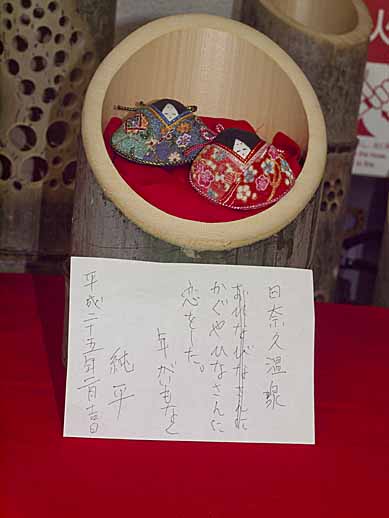 日奈久温泉
おれなびなさんに
かぐやひなさんに
恋をした。
年がいもなく
純平
平成二十五年二月吉日